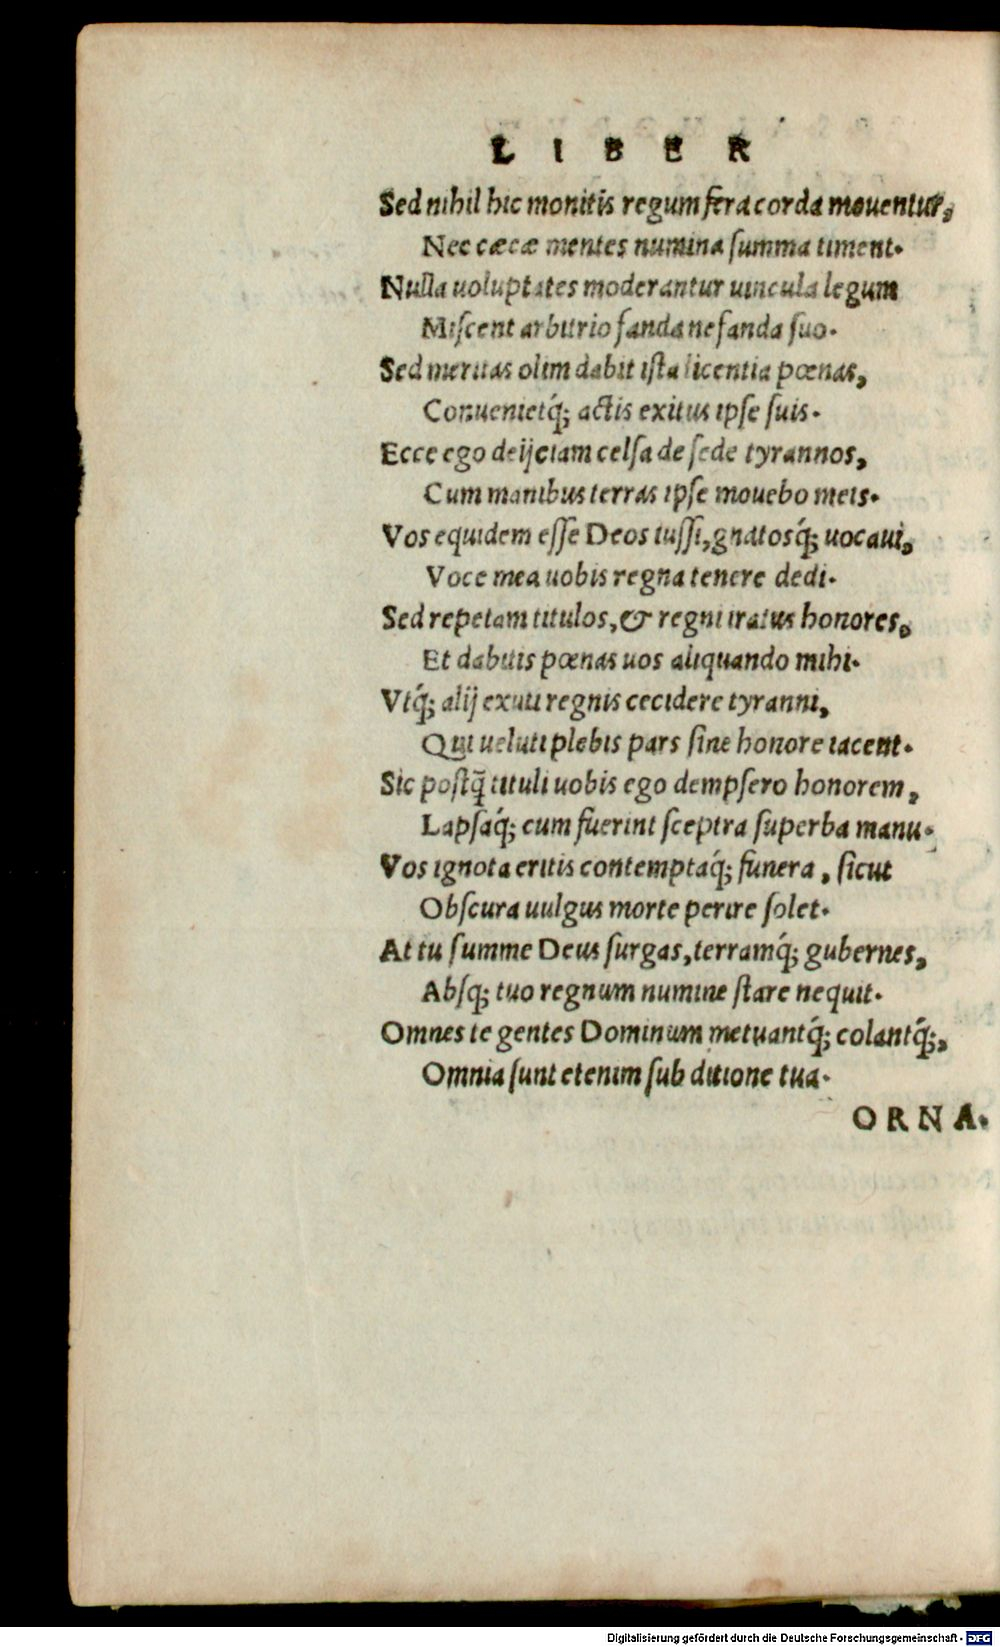 LIBER
Sed nihil hic monitis regum fera corda mouentur,
Nec cæcæ mentes numina summa timent.
Nulla uoluptates moderantur uincula legum
Miscent arbitrio fanda nefanda suo.
Sed meritas olim dabit ista licentia pœnas,
Conuenietq́; actis exitus ipse suis.
Ecce ego deijciam celsa de sede tyrannos,
Cum manibus terras ipse mouebo meis.
Vos equidem esse Deos iussi, gnatosq́; uocaui,
Voce mea uobis regna tenere dedi.
Sed repetam titulos, & regni iratus honores,
Et dabitis pœnas uos aliquando mihi.
Vtq́; alij exuti regnis cecidere tyranni,
Qui ueluti plebis pars sine honore iacent.
Sic postq̃ tituli uobis ego dempsero honorem,
Lapsaq́; cum fuerint sceptra superba manu.
Vos ignota eritis contemptaq́; funera, sicut
Obscura uulgus morte perire solet.
At tu summe Deus surgas, terramq́; gubernes,
Absq; tuo regnum numine stare nequit.
Omnes te gentes Dominum metuantq́; colantq́;,
Omnia sunt etenim sub ditione tua.
ORNA.
Digitalisierung gefördert durch die Deutsche Forschungsgemeinschaft - DFG